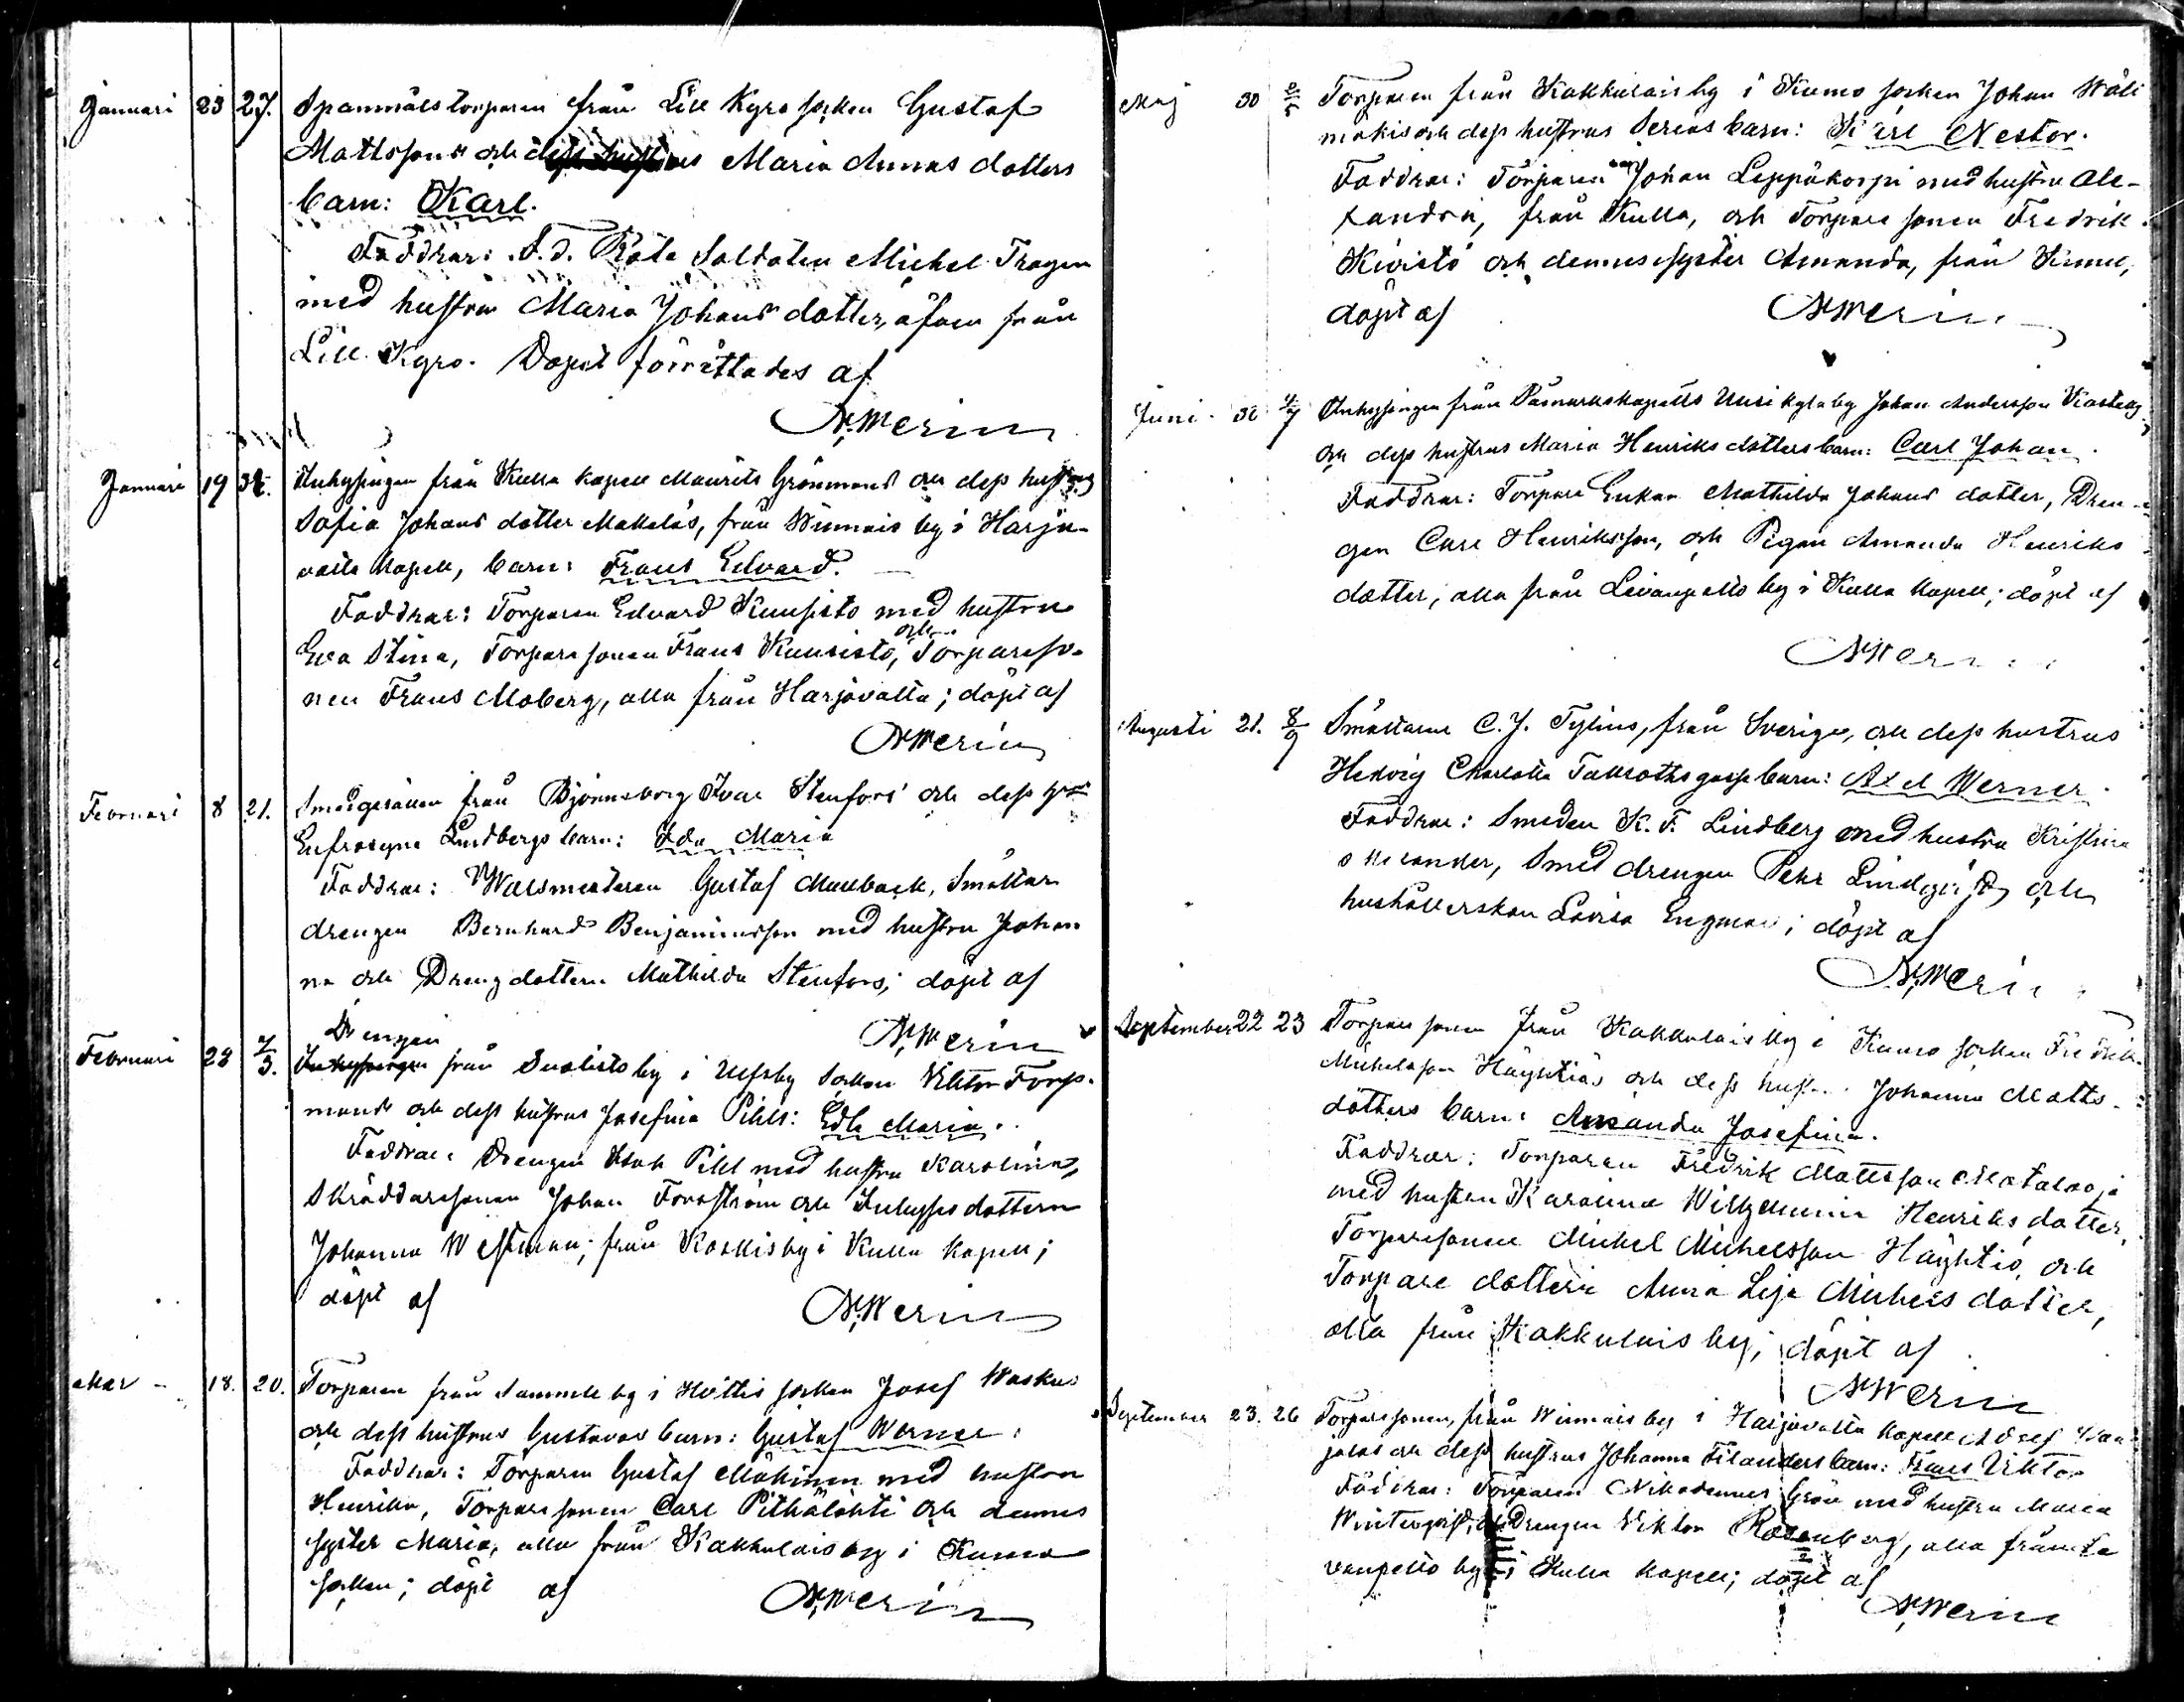 Januari 23 27. Spanmålstorparen från Lill Kyro socken Gustaf
Mattssons och dess hustrus Maria Annas dotters
barn: Karl.
Faddrar: F.d. Rote Soldaten Michel Tragen
med hustrun Maria Johans dotter, äfven från
Lill Kyro. Dopet förrättades af
N. Merin
Januari 19 31. Inhysingen från Kulla kapell Maurits Grönmans och dess hustrus
Sofia Johans dotter Mäkeläs, från Winnais by i Harja-
valta kapell, barn: Frans Edvard.
Faddrar: Torparen Edvard Kuusisto med hustrun
och
Eva Stina, Torpare sonen Frans Kuusisto, Torpareso-
nen Frans Moberg, alla från Harjavalta; döpt af
N Merin
Februari 8 21. Smedgesällen från Björneborg Ivar Stenfors och dess
Eufrosyne Lindbergs barn: Ida Maria
Faddrar: Walsmästaren Gustaf Mullback, Smältar
drengen Bernhard Benjaminsson med hustru Johan
na och Drengdottern Mathilda Stenfors; döpt af
N. Merin
Drengen
Februari 28 7/3. Inhysingen från Suolisto by i Ulfsby socken Viktor Fors-
mans och dess hustrus Josefina Pihls: Edla Maria.
Faddrar: Drengen Isak Pihl med hustru Karolina,
Skräddaresonen Johan Forsström och Inhyses dottern
Johanna Westman; från Koskis by i Kulla kapell;
döpt af N. Merin
Mar 18. 20. Torparen från Sammle by i Hvittis socken Josef Waskus
och dess hustrus Gustavas barn: Gustaf Werner.
Faddrar: Torparen Gustaf Mäkinen med hustru
Henrika, Torpare sonen Carl Pitkälähti och dennes
syster Maria, alla från Kakkulais by i Kumo
socken; döpt af N. Merin
Maj 30 2/5 Torparen från Kakkulais by i Kumo socken Johan Wäli
mäkis och dess hustrus Serins barn: Karl Nestor.
Faddrar: Torparen Johan Leppäkorpi med hustru Ale-
xandra, från Kulla, och Torpare sonen Fredrik
Kivistö och dennes syster Amanda, från Kumo,
döpt af N Merin
Juni 30 4/7 Inhysingen från Påmarks kapells Uusikylä by Johan Andersson
och dess hustrus Maria Henriks dotters barn: Carl Johan.
Faddrar: Torpare Enkan Mathilda Johans dotter, Dren-
gen Carl Henriksson, och Pigan Amanda Henriks
dotter, alla från Levanpelto by i Kulla kapell; döpt af
N Merin
Augusti 21. 8/9 Smältaren C. J. Tylius, från Sverige, och dess hustrus
Hedvig Charlotta Tallroths gosse barn: Axel Werner.
Faddrar: Smeden K. F. Lindberg med hustru Kristina
Smed drengen Pehr Lindqvist, och
hushållerskan Lovisa Engman; döpt af
N. Merin
September 22 23 Torpare sonen från Kakkulais by i Kumo socken Fredrik
Michelsson Häyhtiös och dess hust Johanna Matts-
dotters barn: Amanda Josefina.
Faddrar: Torparen Fredrik Mattsson Matalaoja
med hustrun Karolina Wilhelmina Henriks dotter,
Torparesonen Michel Michelsson Häyhtiö, och
Torpare dottern Anna Lisa Michels dotter,
alla från Kakkulais by; döpt af
N Merin
September 23. 26 Torparesonen, från Winnais by i Harjavalta kapell Adolf
jalas och dess hustrus Johanna Filanders barn: Frans Viktor
Faddrar: Torparen Nikodemus Grön med hustru Maria
Winterqvist, och Drengen Viktor Rosenberg, alla från Le
vanpelto by i Kulla kapell; döpt af
N. Merin